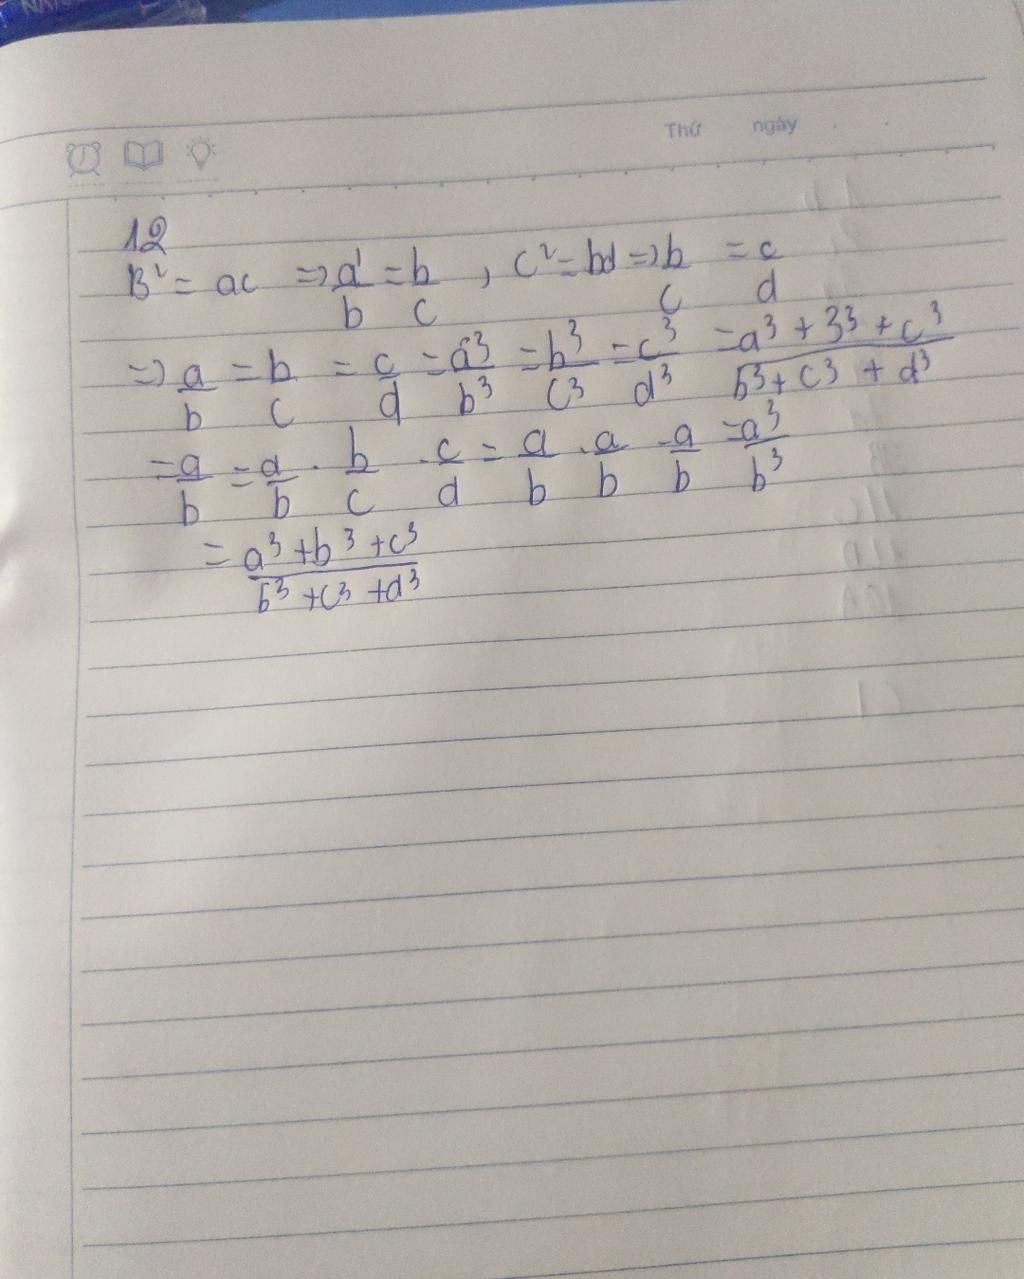 Thứ ngày
12
B² = ac => a/b = b/c , c² = bd => b/c = c/d
=> a/b = b/c = c/d = a³/b³ = b³/c³ = c³/d³ = a³ + 3³ + c³ / b³ + c³ + d³
= a/b = a/b . b/c . c/d = a/b . a/b . a/b = a³/b³
= a³ + b³ + c³ / b³ + c³ + d³